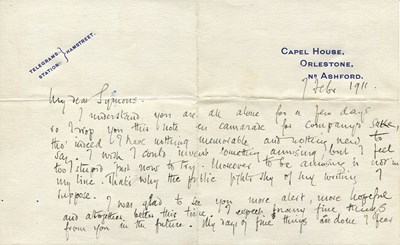 TELEGRAMS
STATION
HAMSTREET.
CAPEL HOUSE,
ORLESTONE,
NR ASHFORD.
7 Febr 1911.
My dear Symons.
I understand you are all alone for a few days
so I drop you this note en camarade for company's sake,
tho' indeed I have nothing memorable and nothing new to
say. I wish I could invent something amusing but I feel
too stupid just now to try. Moreover to be amusing is not in
my line. That's why the public fights shy of my writing I
suppose. I was glad to see you more alert, more hopeful
and altogether better this time. I expect many fine things
from you in the future. My days of fine things are done I fear